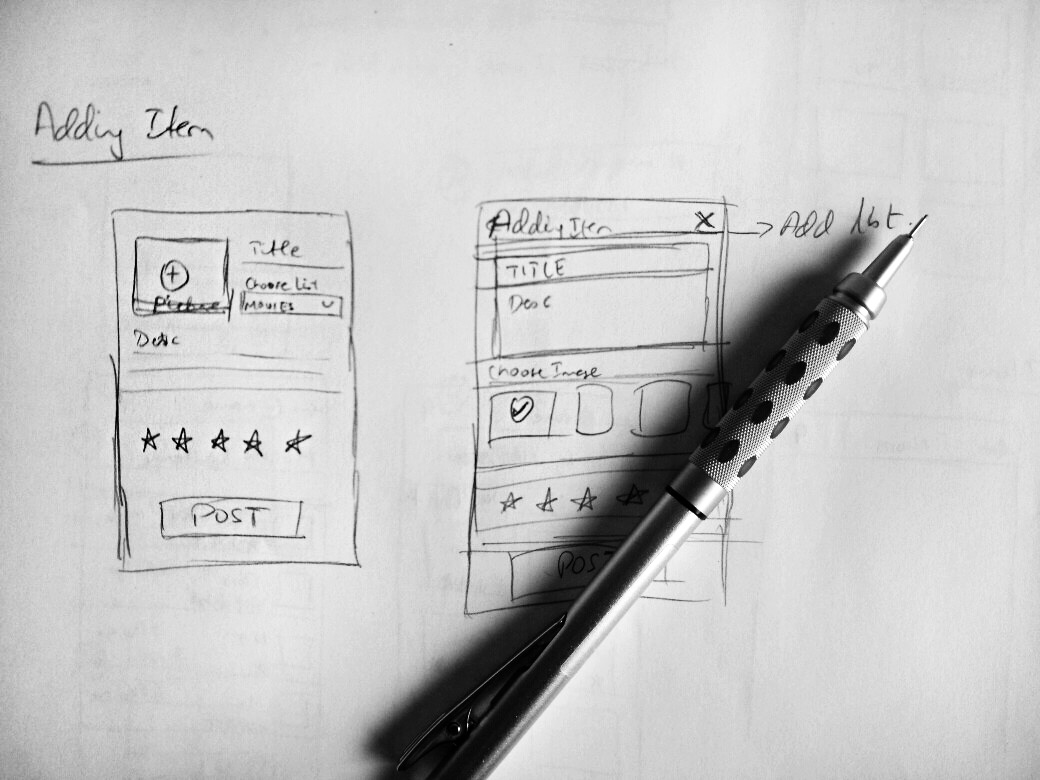 Adding Item
Title
Choose List
MOVIES
Picture
Desc
POST
Adding Item X
Add list.
TITLE
Desc
Choose Image
POST